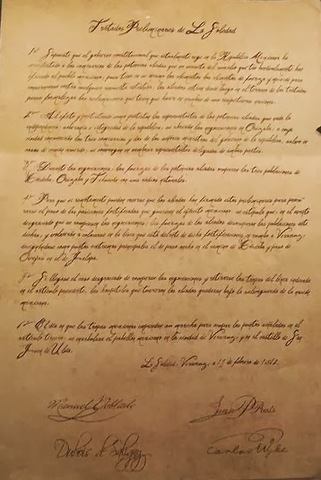 Tratados Preliminares de La Soledad
1º Supuesto que el gobierno constitucional que actualmente rige en la República Mexicana ha
manifestado a los comisarios de las potencias aliadas que no necesita del auxilio que tan benévolamente han
ofrecido al pueblo mexicano, pues tiene en sí mismo los elementos de fuerza y opinión para
conservarse contra cualquier revuelta intestina, los aliados entran desde luego en el terreno de los tratados
para formalizar las reclamaciones que tienen que hacer en nombre de sus respectivas naciones.
2º Al efecto y protestando
de las potencias aliadas que nada
independencia, soberanía
de la república, se abrirán las negociaciones en Orizaba, a cuya
ciudad concurrirán los
comisarios y dos de los
ministros del gobierno de la república, salvo el
caso de
nombrar representantes delegados de ambas partes.
3º Durante las negociaciones, las fuerzas de las potencias aliadas ocuparán las tres poblaciones de
Córdoba, Orizaba y Tehuacán con sus radios naturales.
4º Para que ni remotamente pueda creerse que los aliados han firmado estos preliminares para
el paso de las posiciones fortificadas que guarnece el ejército mexicano, se estipula que, en el evento
desgraciado que se rompiesen las negociaciones, las fuerzas de los aliados desocuparán las poblaciones
y volverán a colocarse en la línea que está delante de dichas fortificaciones,
a Veracruz,
el de Paso Ancho en el camino de Córdoba y Paso de
Ovejas en el de Jalapa.
5º Si llegase el caso desgraciado de romperse las negociaciones y retirarse las tropas
de la línea indicada
en el artículo precedente, los hospitales que tuvieren los aliados quedarán bajo la salvaguardia de la nación
mexicana.
6º El día en que las tropas
emprendan su marcha para ocupar los puntos señalados en el
artículo tercero, se enarbolará el pabellón mexicano en la ciudad de Veracruz y en el castillo de San
Juan de Ulúa.
La Soledad, Veracruz, a 19 de febrero de 1862.
Manuel Doblado
Juan P Prim
Dubois de Saligny
Carlos Wyke